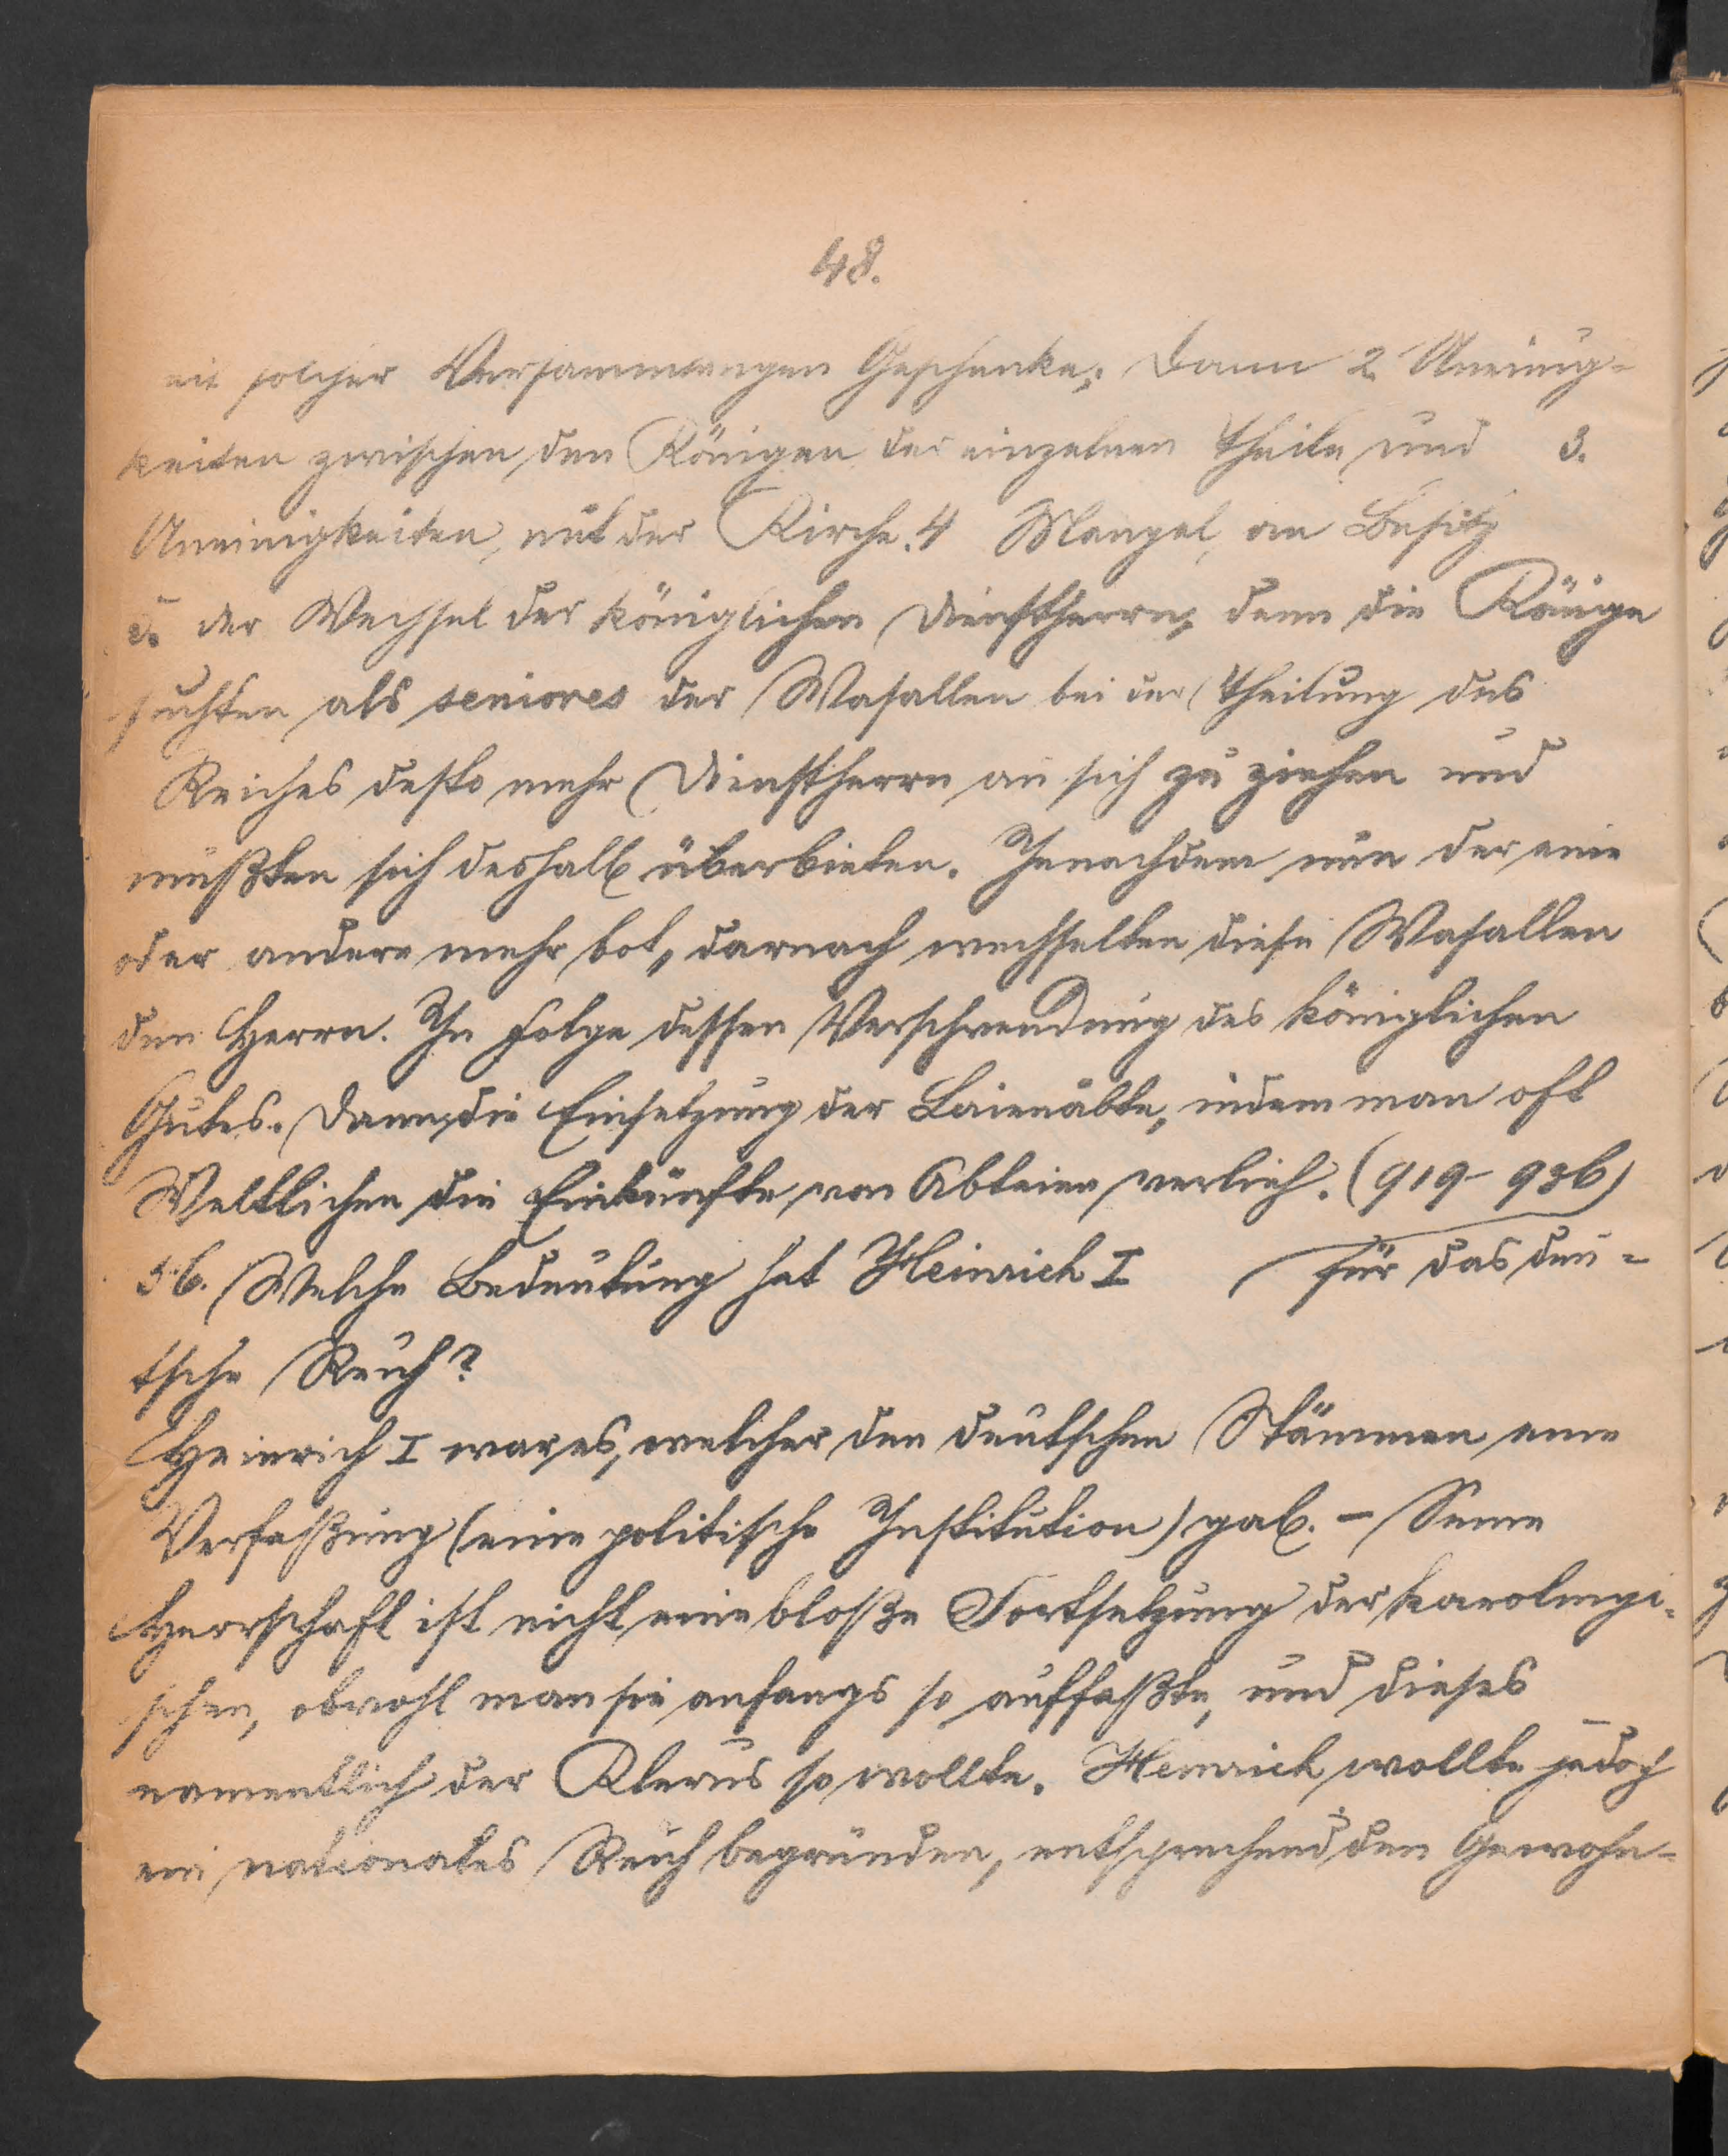 48.
solcher Versammlungen Geschenke; dann 2. Uneinig-
keiten zwischen den Königen der einzelnen Theile und 3.
Uneinigkeiten mit der Kirche. 4 Mangel an Besitz
5. der Wechsel der königlichen Dienstherrn, denn die Könige
suchten als seniores der Wasallen bei der Theilung des
Reiches desto mehr Dienstherrn an sich zu ziehen und
mußten sich deshalb überbieten. Jenachdem nun der eine
oder andere mehr bot, darnach wechselten diese Wasallen
den Herrn. In Folge dessen Verschwendung des königlichen
Gutes. Dann die Einsetzung der Laienäbte, indem man oft
Weltlichen die Einkünfte von Abteien verlieh. (919-936)
56. Welche Bedeutung hat Heinrich I für das deu-
tsche Reich?
Heinrich I war es, welcher den deutschen Stämmen eine
Verfaßung (eine politische Institution) gab. - Seine
Herrschaft ist nicht eine bloße Fortsetzung der karolingi-
schen, obwohl man sie anfangs so auffaßte, und dieses
namentlich der Klerus so wollte. Heinrich wollte jedoch
ein nationales Reich begründen, entsprechend den Gewohn-